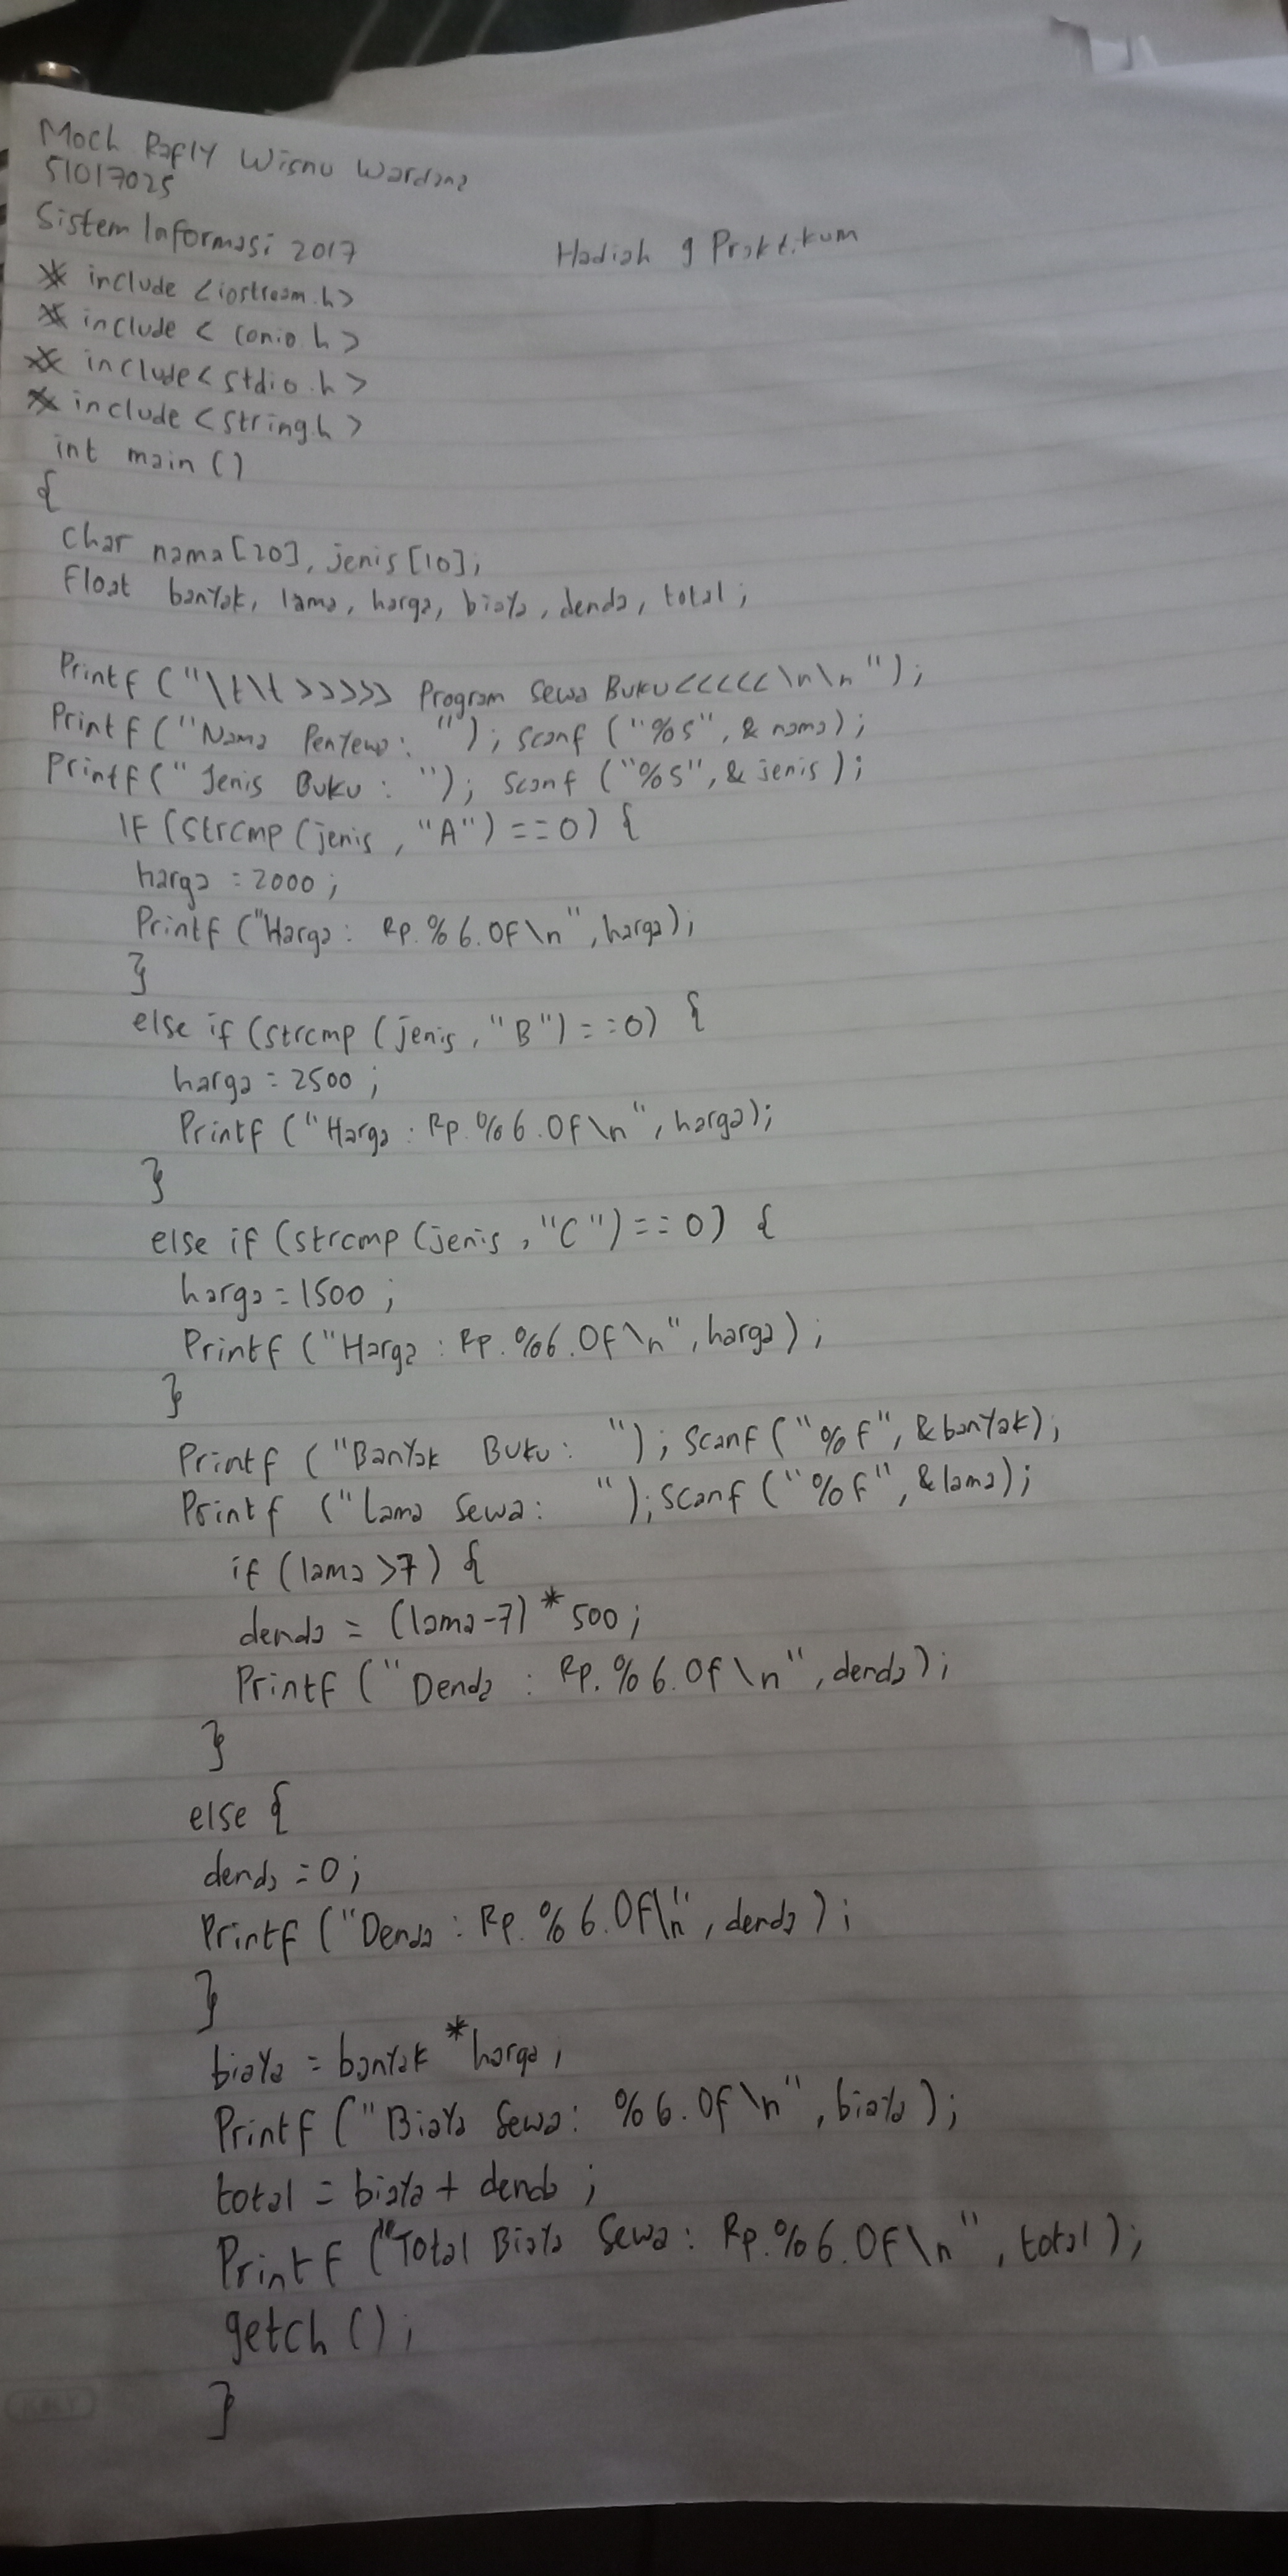 Moch Rafly Wisnu Wardana
51017025
Sistem Informasi 2017
Hadiah 9 Praktikum
# include <iostream.h>
# include < conio.h >
# include < stdio.h >
# include < string.h >
int main ()
{
char nama [20], jenis [10];
Float banyak, lama, harga, biaya, denda, total;
Printf ("\t\t >>>>> Program Sewa Buku <<<<< \n\n ");
Printf ("Nama Penyewa: "); scanf ("%s", & nama);
Printf (" Jenis Buku : "); Scanf ("%s", & jenis );
IF (Strcmp (jenis , "A") == 0) {
harga = 2000 ;
Printf ("Harga : Rp. % 6.0f \n", harga);
}
else if (strcmp (jenis , "B") == 0) {
harga = 2500 ;
Printf ("Harga : Rp. %6.0f \n", harga);
}
else if (strcmp (jenis , "C") == 0) {
harga = 1500 ;
Printf ("Harga : Rp. %6.0f \n", harga) ;
}
Printf ("Banyak Buku : "); Scanf ("%f", &banyak);
Printf ("Lama Sewa: "); Scanf ("%f", &lama);
if (lama >7) {
denda = (lama-7) * 500 ;
Printf ("Denda : Rp. % 6.0f \n", denda);
}
else {
denda = 0;
Printf ("Denda : Rp. % 6.0f\n", denda );
}
biaya = banyak * harga,
Printf ("Biaya Sewa: % 6.0f \n", biaya );
total = biaya + denda ;
Printf ("Total Biaya Sewa: Rp. %6.0f \n", total );
getch ();
}